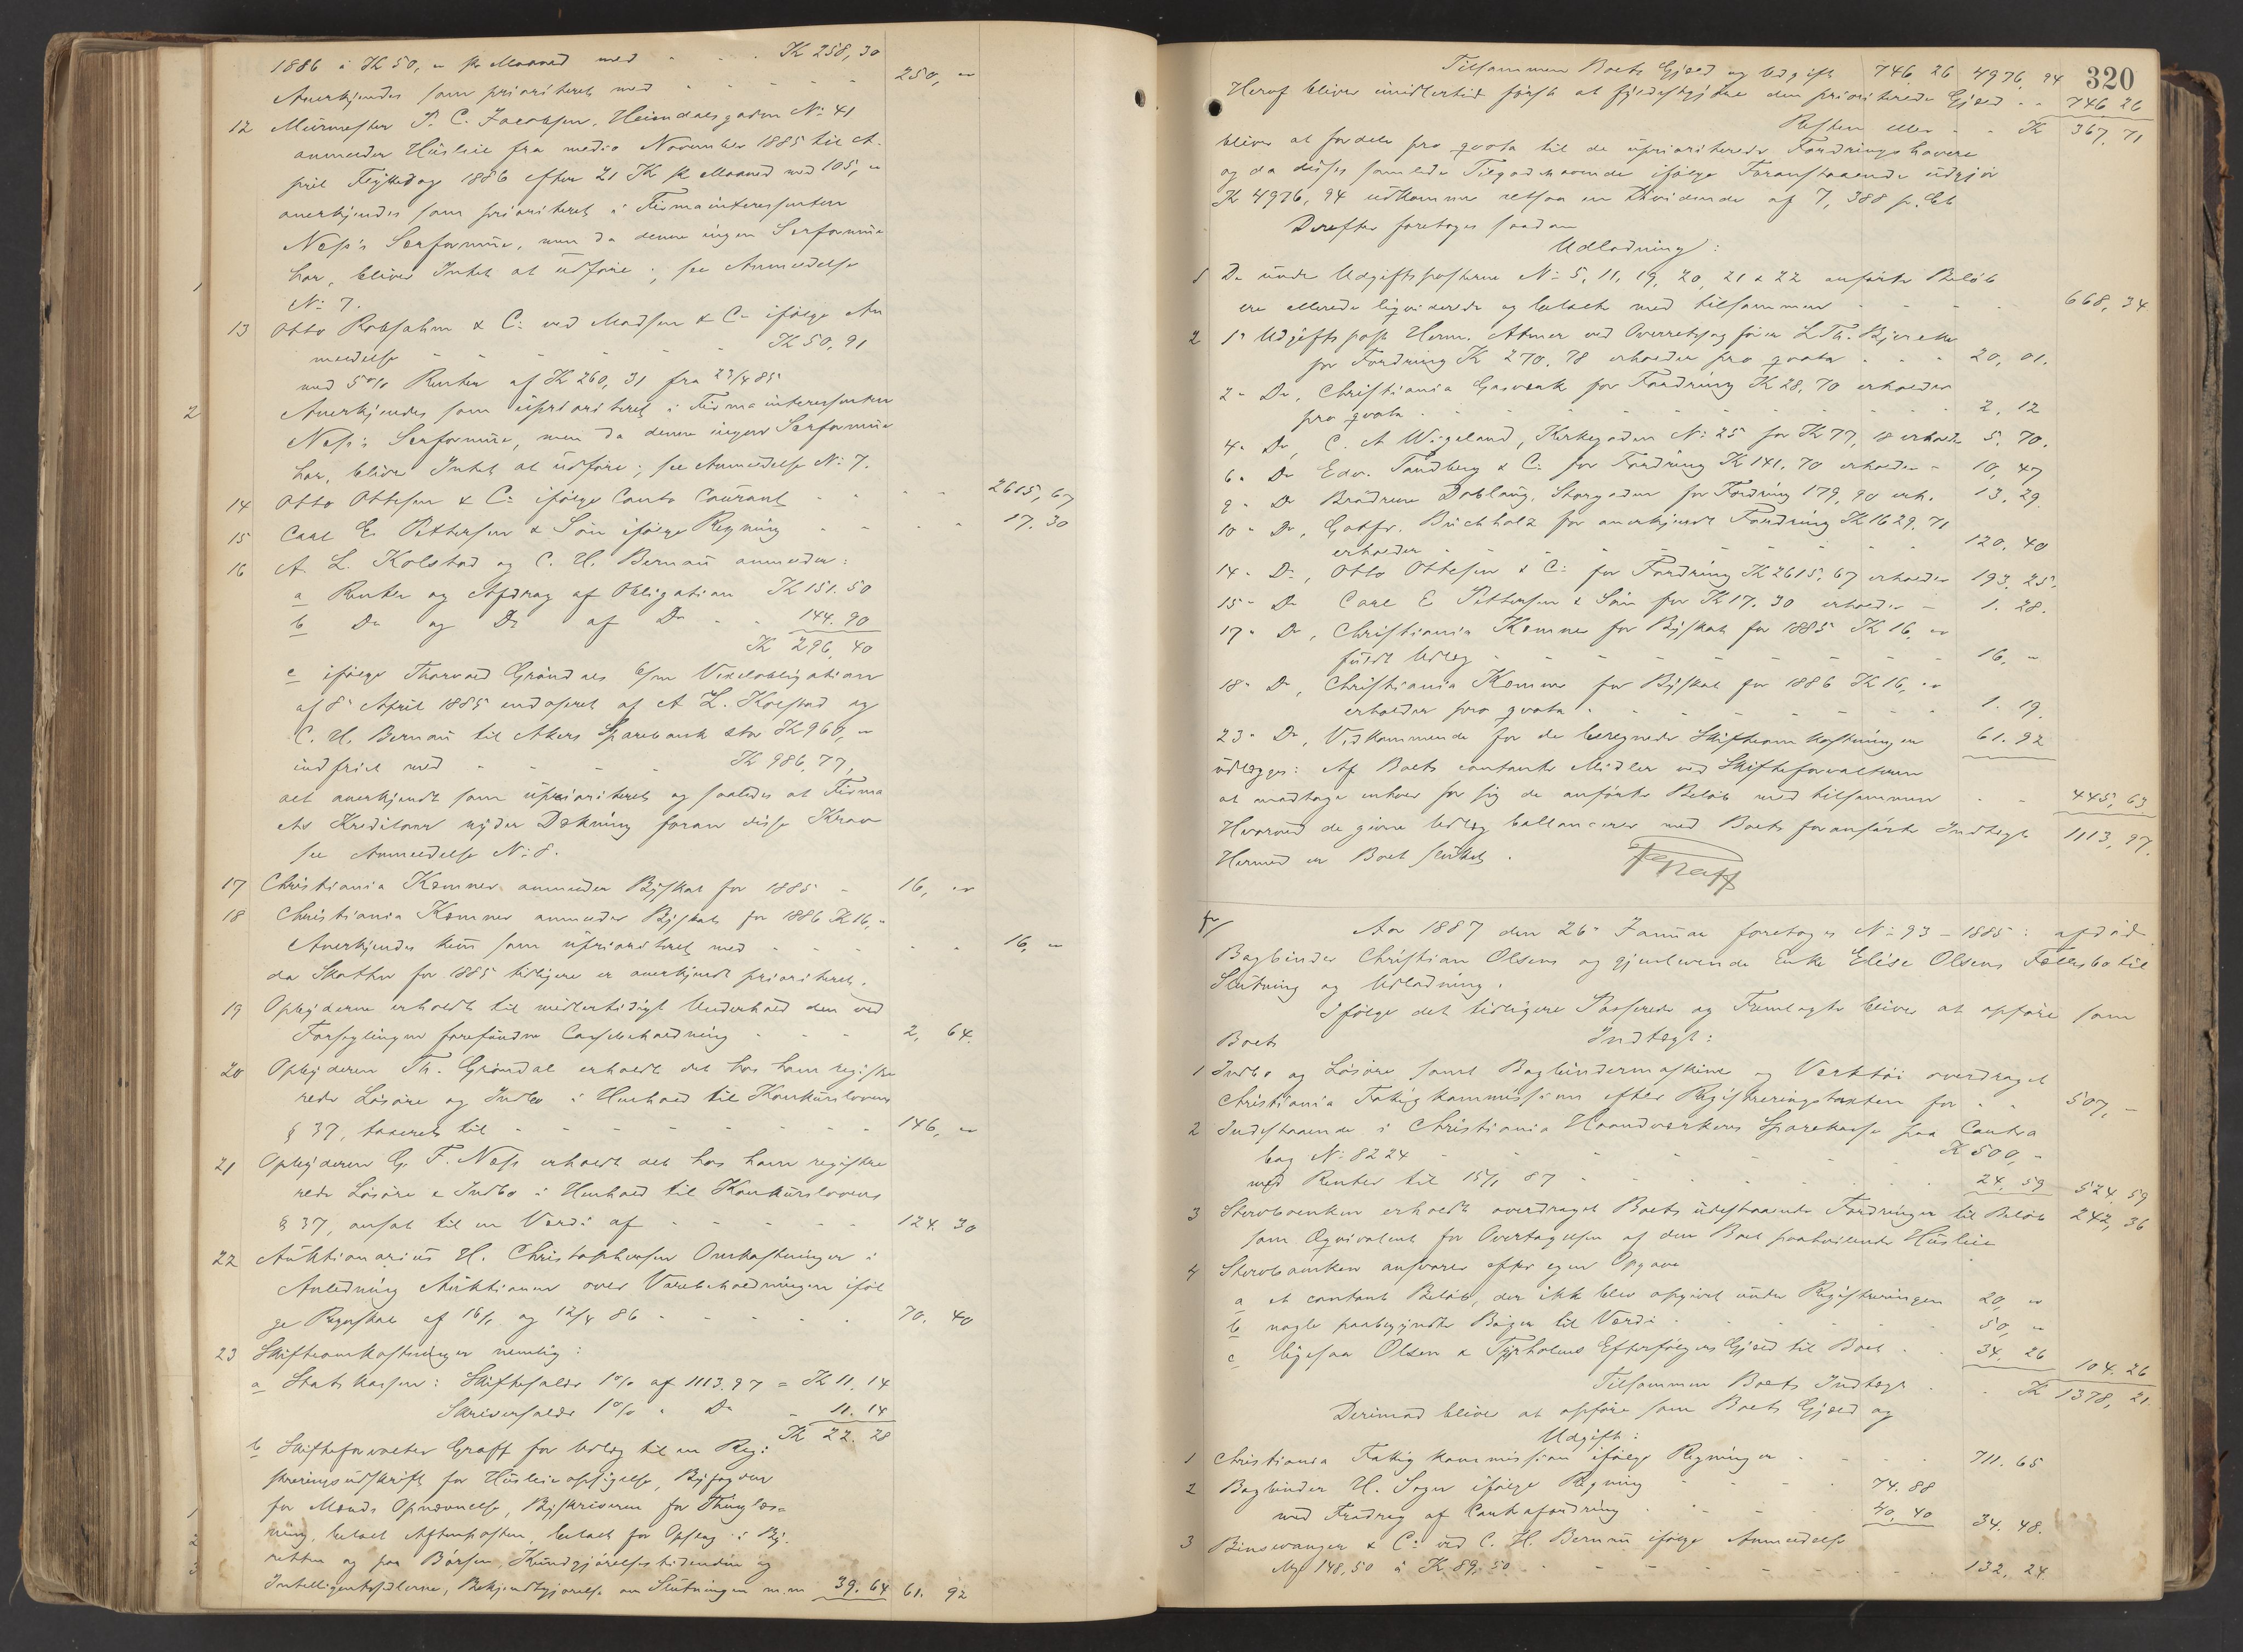 1886 à Kr 50, " pr Maaned med - - - Kr 258,30
Anerkjendes som prioriteret med - - - 250, "
12 Murmester P. C. Jacobsen, Heimdalsgaden No 41
anmelder Husleie fra medio November 1885 til A-
pril Flyttedag 1886 efter 21 Kr pr Maaned med 105, "
anerkjendes som prioriteret i Firmainteressenten
Næss's Særformue, men da denne ingen Særformue
har, bliver Intet at udføre; see Anmeldelse
No 7.
13 Otto Robsahm & Co ved Madsen & Co ifølge An
meldelse - - - - - Kr 50,91
med 5% Renter af Kr 260,31 fra 23/4 85
Anerkjendes som uprioriteret i Firmainteressenten
Næss's Særformue, men da denne ingen Særformue
har, bliver Intet at udføre; see Anmeldelse No 7.
14 Otto Ottesen & Co ifølge Conto Courant - - - - 2615,67
15 Carl E. Pettersen & Søn ifølge Regning - - - - 17.30
16 A. L. Kolstad og C. H. Bernau anmelder:
a Renter og Afdrag af Obligation Kr 151.50
b Do og Do af Do - - 144.90
Kr 296,40
c ifølge Thorvald Grøndals Vexelobligation
af 8de April 1885 endosseret af A L. Kolstad og
C. H. Bernau til Akers Sparebank stor Kr 960, "
indfriet med - - - - Kr 986.77,
alt anerkjendt som uprioriteret og saaledes at Firma
ets Kreditorer nyder Dækning foran disse Krav
see Anmeldelse No 8.
17 Christiania Kæmner anmelder Byskat for 1885 - 16, "
18 Christiania Kæmner anmelder Byskat for 1886 Kr 16, "
Anerkjendes kun som uprioriteret med - - - - - 16, "
da Skatten for 1885 tidligere er anerkjendt prioriteret.
19 Opbyderne erholdt til midlertidigt Underhold den ved
Forseglingen forefundne Cassebeholdning - - - 2, 64.
20 Opbyderen Th. Grøndal erholdt det hos ham registre
rede Løsøre og Indbo i Henhold til Konkurslovens
§ 37, taxeret til - - - - - - - - 146, "
21 Opbyderen G. F. Næss erholdt det hos ham registre
rede Løsøre & Indbo i Henhold til Konkurslovens
§ 37, ansat til en Værdi af - - - - - 124.30
22 Auktionarius H. Christophersen Omkostninger i
Anledning Auktionen over Varebeholdningen iføl
ge Regnskab af 16/1 og 12/4 86 - - - - - 70. 40
23 Skifteomkostninger nemlig:
a Statskassen: Skiftesalær 1% af 1113.97 = Kr 11.14
Skriversalær 1% " Do - 11.14
Kr 22.28
b Skifteforvalter Graff for Udlæg til en Regi
streringsudskrift for Husleieopsigelse, Byfogden
for Mænds Opnævnelse, Byskriveren for Thinglæs-
ning, betalt Aftenposten, betalt for Opslag i By-
retten og paa Børsen, Kundgjørelsestidenden og
Intelligentssedlerne, Bekjendtgjørelse om Slutningen m.m 39.64 61. 92
320
Tilsammen Boets Gjæld og Udgift 746.26 4976,94
Heraf bliver imidlertid først at fyldestgjøre den prioriterede Gjæld - - 746.26
Resten eller - - Kr 367.71
bliver at fordele pro qvota til de uprioriterede Fordringshavere
og da disses samlede Tilgodehavende ifølge Foranstaaende udgjør
Kr 4976,94 udkommer altsaa en Dividende af 7,388 p. Ct
Derefter foretoges saadan
Udlodning:
1 De under Udgiftsposterne No 5, 11, 19, 20, 21 & 22 anførte Beløb
ere allerede liqviderede og betalte med tilsammen - - - - 668,34
2 1ste Udgiftspost Herm. Atmer ved Overretssagfører L. Th. Bjercke
for Fordring Kr 270.78 erholder pro qvota - - - 20, 01.
2den Do, Christiania Gasværk for Fordring Kr 28,70 erholder
pro qvota - - - - - - - - - 2,12
4de Do, C. A Wigeland, Kirkegaden No 25 for Kr 77,18 erholder 5.70.
6te Do Edv. Tandberg & Co for Fordring Kr 141.70 erholder - 10,47
8de Do Brødrene Dobloug, Storgaden for Fordring 179,90 erh. 13.29
10de Do, Gotfr. Buchholz for anerkjendt Fordring Kr 1629.71
erholder - - - - - - - - 120.40
14de Do, Otto Ottesen & Co for Fordring Kr 2615,67 erholder 193.25.
15de Do Carl E Pettersen & Søn for Kr 17.30 erholder - 1.28.
17de Do, Christiania Kæmner for Byskat for 1885 Kr 16, "
fuldt Udlæg - - - - - - - - 16, "
18de Do, Christiania Kæmner for Byskat for 1886 Kr 16, "
erholder pro qvota - - - - - - - 1.19.
23de Do, Vedkommende for de beregnede Skifteomkostninger 61.92
udlægges: Af Boets contante Midler ved Skifteforvalteren
at modtage enhver for sig de anførte Beløb med tilsammen - - 445,63
Hvorved de givne Udlæg ballancerer med Boets foranførte Indtægt 1113,97.
Hermed er Boet sluttet.
Graff
Aar 1887 den 26de Januar foretoges No 93 - 1885: afdød
Bogbinder Christian Olsens og gjenlevende Enke Elise Olsens Fællesbo til
Slutning og Udlodning.
Ifølge det tidligere Passerede og Fremlagte bliver at opføre som
Boets Indtægt:
1 Indbo og Løsøre samt Bogbindermaskine og Værktøi overdraget
Christiania Fattigkommission efter Registreringstaxten for - - 507, -
2 Indestaaende i Christiania Haandværkeres Sparekasse paa Contra
bog No 8224 - - - - - - - Kr 500, -
med Renter til 15/1 87 - - - - - - - 24.59 524.59
3 Stervboenken erholdt overdraget Boets udestaaende Fordringer til Beløb 242,36
som Æqvivalent for Overtagelsen af den Boet paahvilende Husleie
4 Stervboenken ansvarer efter egen Opgave
a et contant Beløb, der ikke blev opgivet under Registreringen 20, "
b nogle paabegyndte Bøger til Værdi - - - - - 50, "
c ligesaa Olsen & Efterfølgers Gjæld til Boet - - 34.26 104.26
Tilsammen Boets Indtægt - - Kr 1378,21.
Derimod bliver at opføre som Boets Gjæld og
Udgift:
1 Christiania Fattigkommission ifølge Regninger - - - 711.65
2 Bogbinder H. Soger ifølge Regning - - - 74.88
med Fradrag af Contrafordring - - - 40,40 34.48.
3 Binswanger & Co ved C. H. Bernau ifølge Anmeldelse
148,50 à Kr 89.50 - - - - - - 132,24.